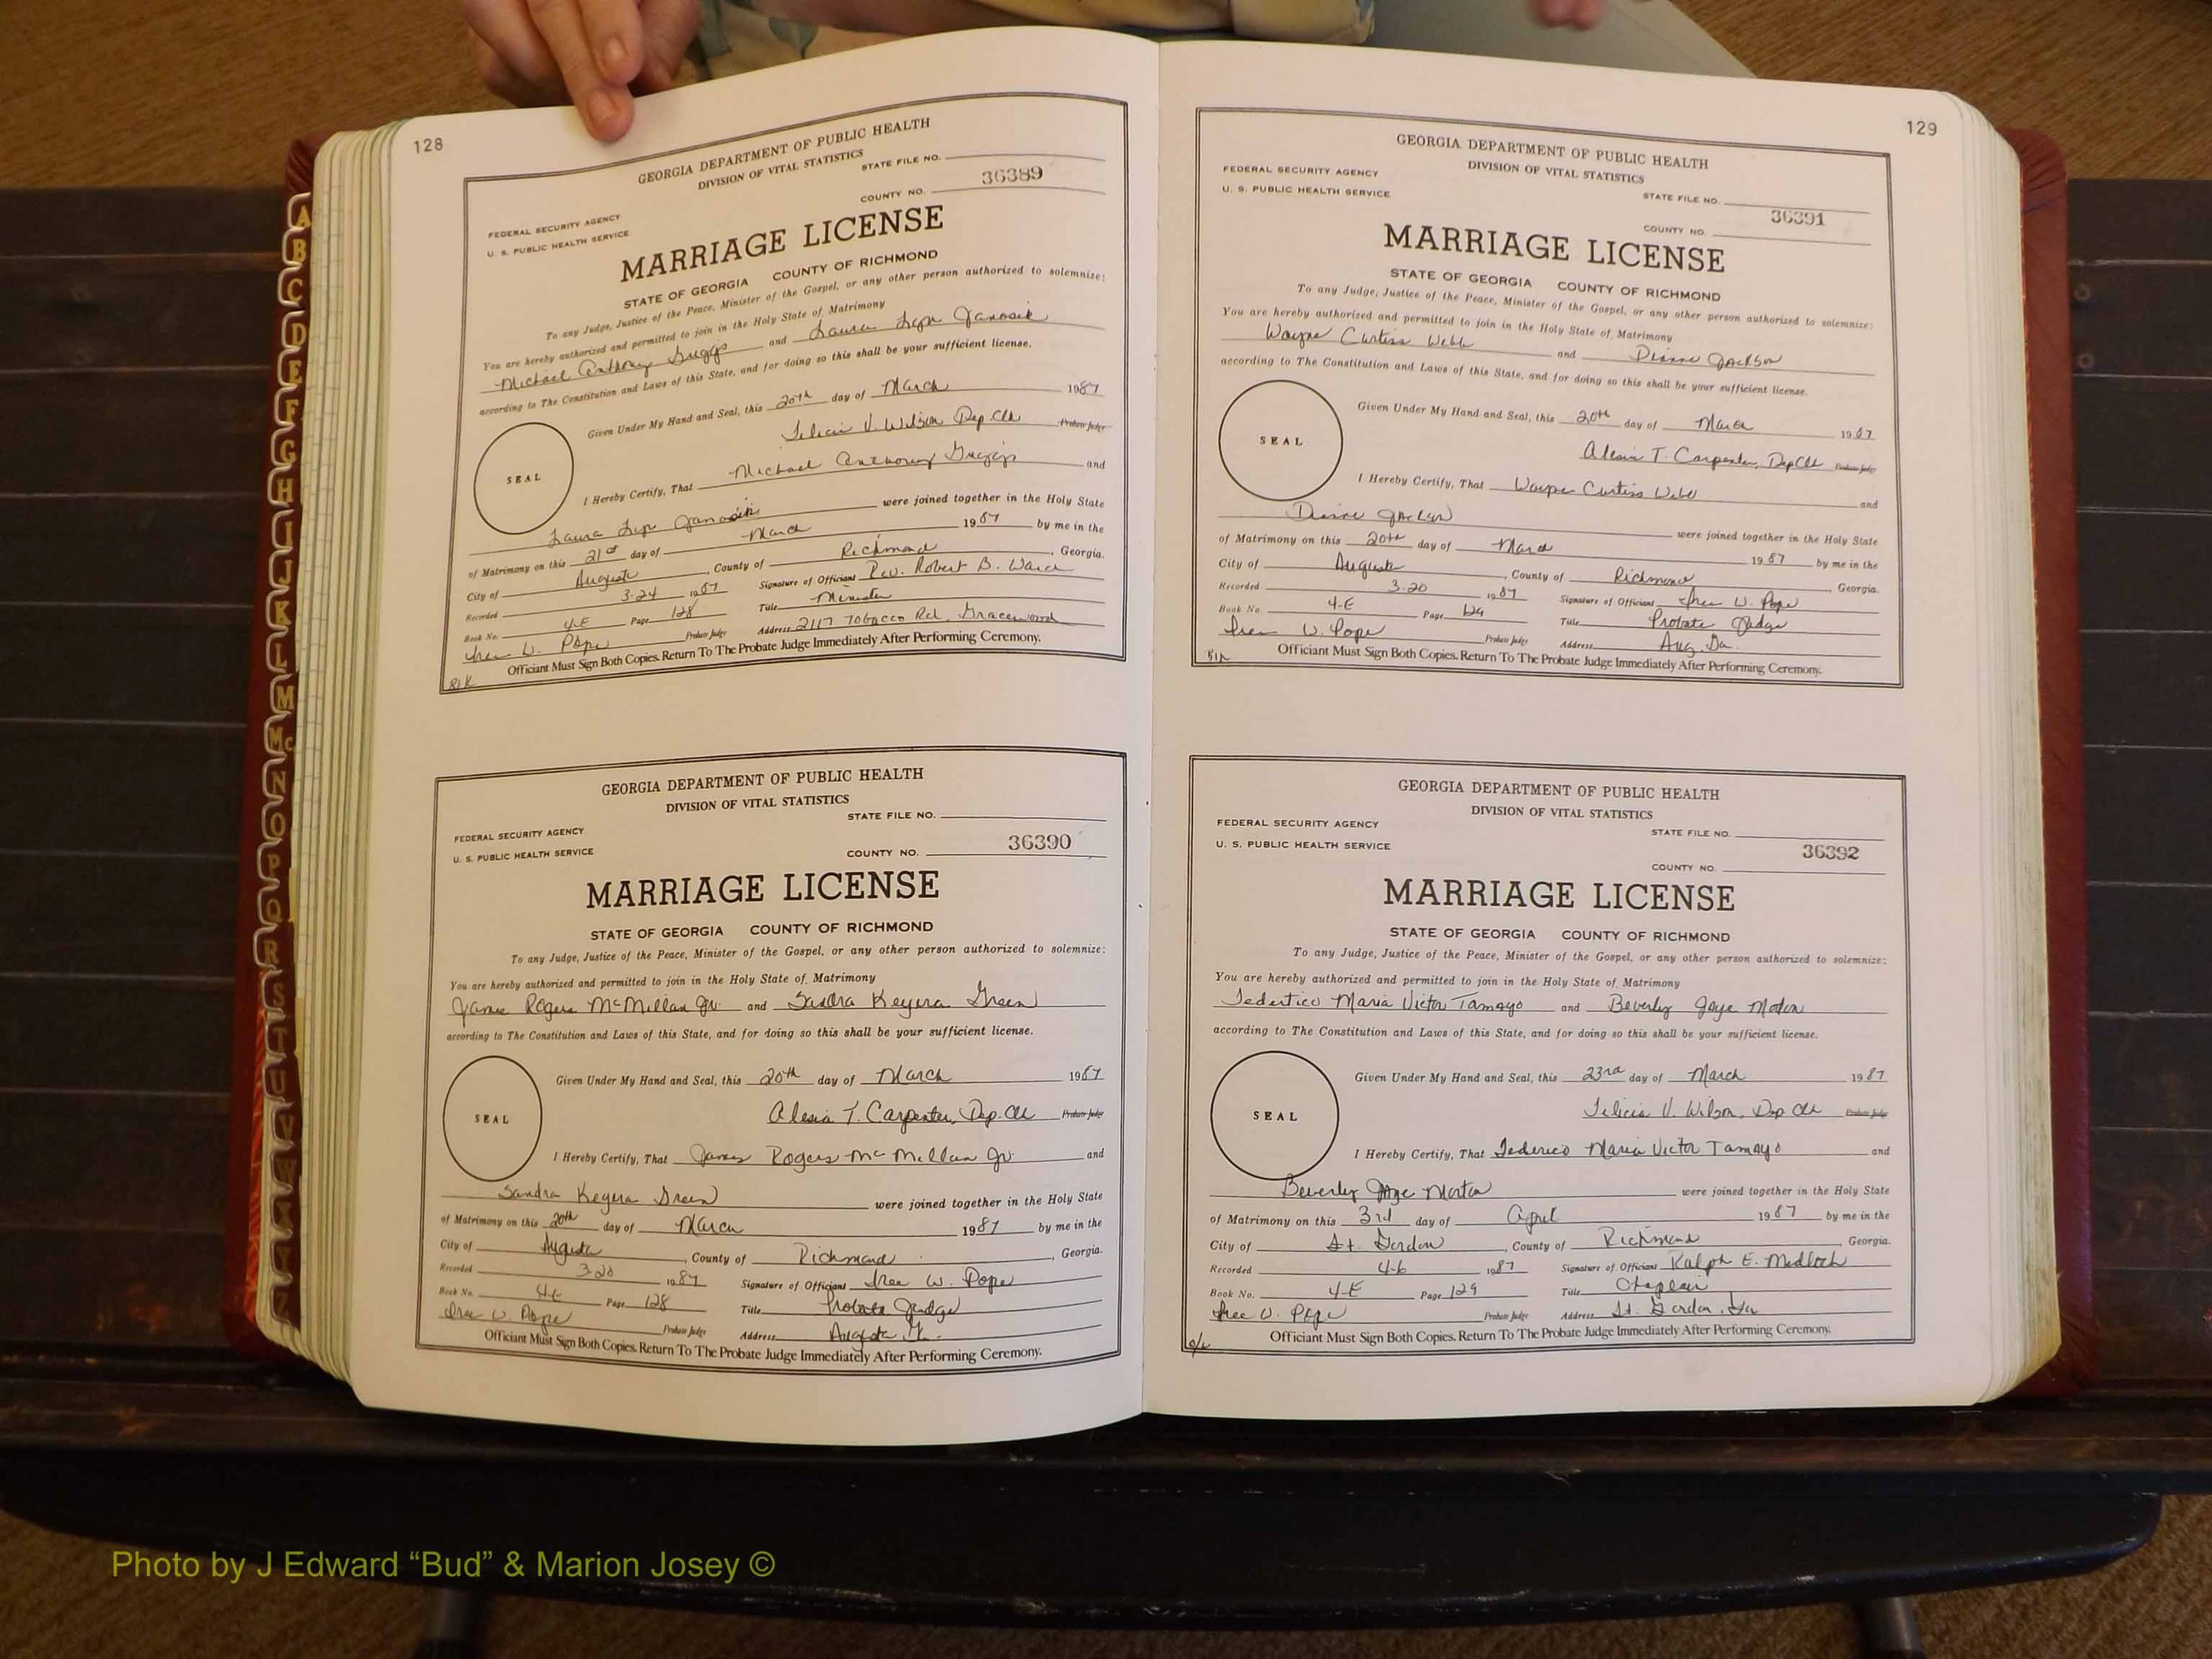 128
GEORGIA DEPARTMENT OF PUBLIC HEALTH
DIVISION OF VITAL STATISTICS
STATE FILE NO.
36389
COUNTY NO.
FEDERAL SECURITY AGENCY
U. S. PUBLIC HEALTH SERVICE
MARRIAGE LICENSE
STATE OF GEORGIA COUNTY OF RICHMOND
To any Judge, Justice of the Peace, Minister of the Gospel, or any other person authorized to solemnize:
You are hereby authorized and permitted to join in the Holy State of Matrimony
Michael Anthony Griggs and Laura Lyn Janosik
according to The Constitution and Laws of this State, and for doing so this shall be your sufficient license.
Given Under My Hand and Seal, this 20th day of March 1987
Felicia V. Wilson Dep Clk Probate Judge
SEAL
I Hereby Certify, That Michael Anthony Griggs and
Laura Lyn Janosik were joined together in the Holy State
of Matrimony on this 21st day of March 1987 by me in the
City of Augusta, County of Richmond, Georgia.
Recorded 3-24 1987 Signature of Officiant Rev. Robert B. Ward
Book No. 4-E Page 128 Title Minister
Probate Judge Address 2117 Tobacco Rd, Gracewood
Officiant Must Sign Both Copies. Return To The Probate Judge Immediately After Performing Ceremony.
GEORGIA DEPARTMENT OF PUBLIC HEALTH
DIVISION OF VITAL STATISTICS
STATE FILE NO.
FEDERAL SECURITY AGENCY
U. S. PUBLIC HEALTH SERVICE
COUNTY NO. 36390
MARRIAGE LICENSE
STATE OF GEORGIA COUNTY OF RICHMOND
To any Judge, Justice of the Peace, Minister of the Gospel, or any other person authorized to solemnize:
You are hereby authorized and permitted to join in the Holy State of Matrimony
James Rogers McMillan Jr. and Sandra Keyera Green
according to The Constitution and Laws of this State, and for doing so this shall be your sufficient license.
Given Under My Hand and Seal, this 20th day of March 1987
Alesia T. Carpenter, Dep. Clk Probate Judge
SEAL
I Hereby Certify, That James Rogers McMillan Jr. and
Sandra Keyera Green were joined together in the Holy State
of Matrimony on this 20th day of March 1987 by me in the
City of Augusta, County of Richmond, Georgia.
Recorded 3-20 1987 Signature of Officiant W. Pope
Book No. 4-E Page 128 Title Probate Judge
W. Pope Probate Judge Address Augusta
Officiant Must Sign Both Copies. Return To The Probate Judge Immediately After Performing Ceremony.
129
GEORGIA DEPARTMENT OF PUBLIC HEALTH
DIVISION OF VITAL STATISTICS
FEDERAL SECURITY AGENCY
U. S. PUBLIC HEALTH SERVICE
STATE FILE NO.
36391
COUNTY NO.
MARRIAGE LICENSE
STATE OF GEORGIA COUNTY OF RICHMOND
To any Judge, Justice of the Peace, Minister of the Gospel, or any other person authorized to solemnize:
You are hereby authorized and permitted to join in the Holy State of Matrimony
Wayne Curtiss Webb and Dianne Jackson
according to The Constitution and Laws of this State, and for doing so this shall be your sufficient license.
Given Under My Hand and Seal, this 20th day of March 1987
Alesia T. Carpenter, Dep Clk Probate Judge
SEAL
I Hereby Certify, That Wayne Curtiss Webb and
Dianne Jackson were joined together in the Holy State
of Matrimony on this 20th day of March 1987 by me in the
City of Augusta, County of Richmond, Georgia.
Recorded 3-20 1987 Signature of Officiant W. Pope
Book No. 4-E Page 129 Title Probate Judge
W. Pope Probate Judge Address Aug. Ga.
Officiant Must Sign Both Copies. Return To The Probate Judge Immediately After Performing Ceremony.
GEORGIA DEPARTMENT OF PUBLIC HEALTH
DIVISION OF VITAL STATISTICS
FEDERAL SECURITY AGENCY
U. S. PUBLIC HEALTH SERVICE
STATE FILE NO.
36392
COUNTY NO.
MARRIAGE LICENSE
STATE OF GEORGIA COUNTY OF RICHMOND
To any Judge, Justice of the Peace, Minister of the Gospel, or any other person authorized to solemnize:
You are hereby authorized and permitted to join in the Holy State of Matrimony
Federico Maria Victor Tamayo and Beverly Joye Morton
according to The Constitution and Laws of this State, and for doing so this shall be your sufficient license.
Given Under My Hand and Seal, this 23rd day of March 1987
Felicia V. Wilson, Dep Clk Probate Judge
SEAL
I Hereby Certify, That Federico Maria Victor Tamayo and
Beverly Joye Morton were joined together in the Holy State
of Matrimony on this 3rd day of April 1987 by me in the
City of Ft. Gordon, County of Richmond, Georgia.
Recorded 4-6 1987 Signature of Officiant Ralph E.
Book No. 4-E Page 129 Title Chaplain
W. Pope Probate Judge Address Ft. Gordon, Ga
Officiant Must Sign Both Copies. Return To The Probate Judge Immediately After Performing Ceremony.
Photo by J Edward “Bud” & Marion Josey ©